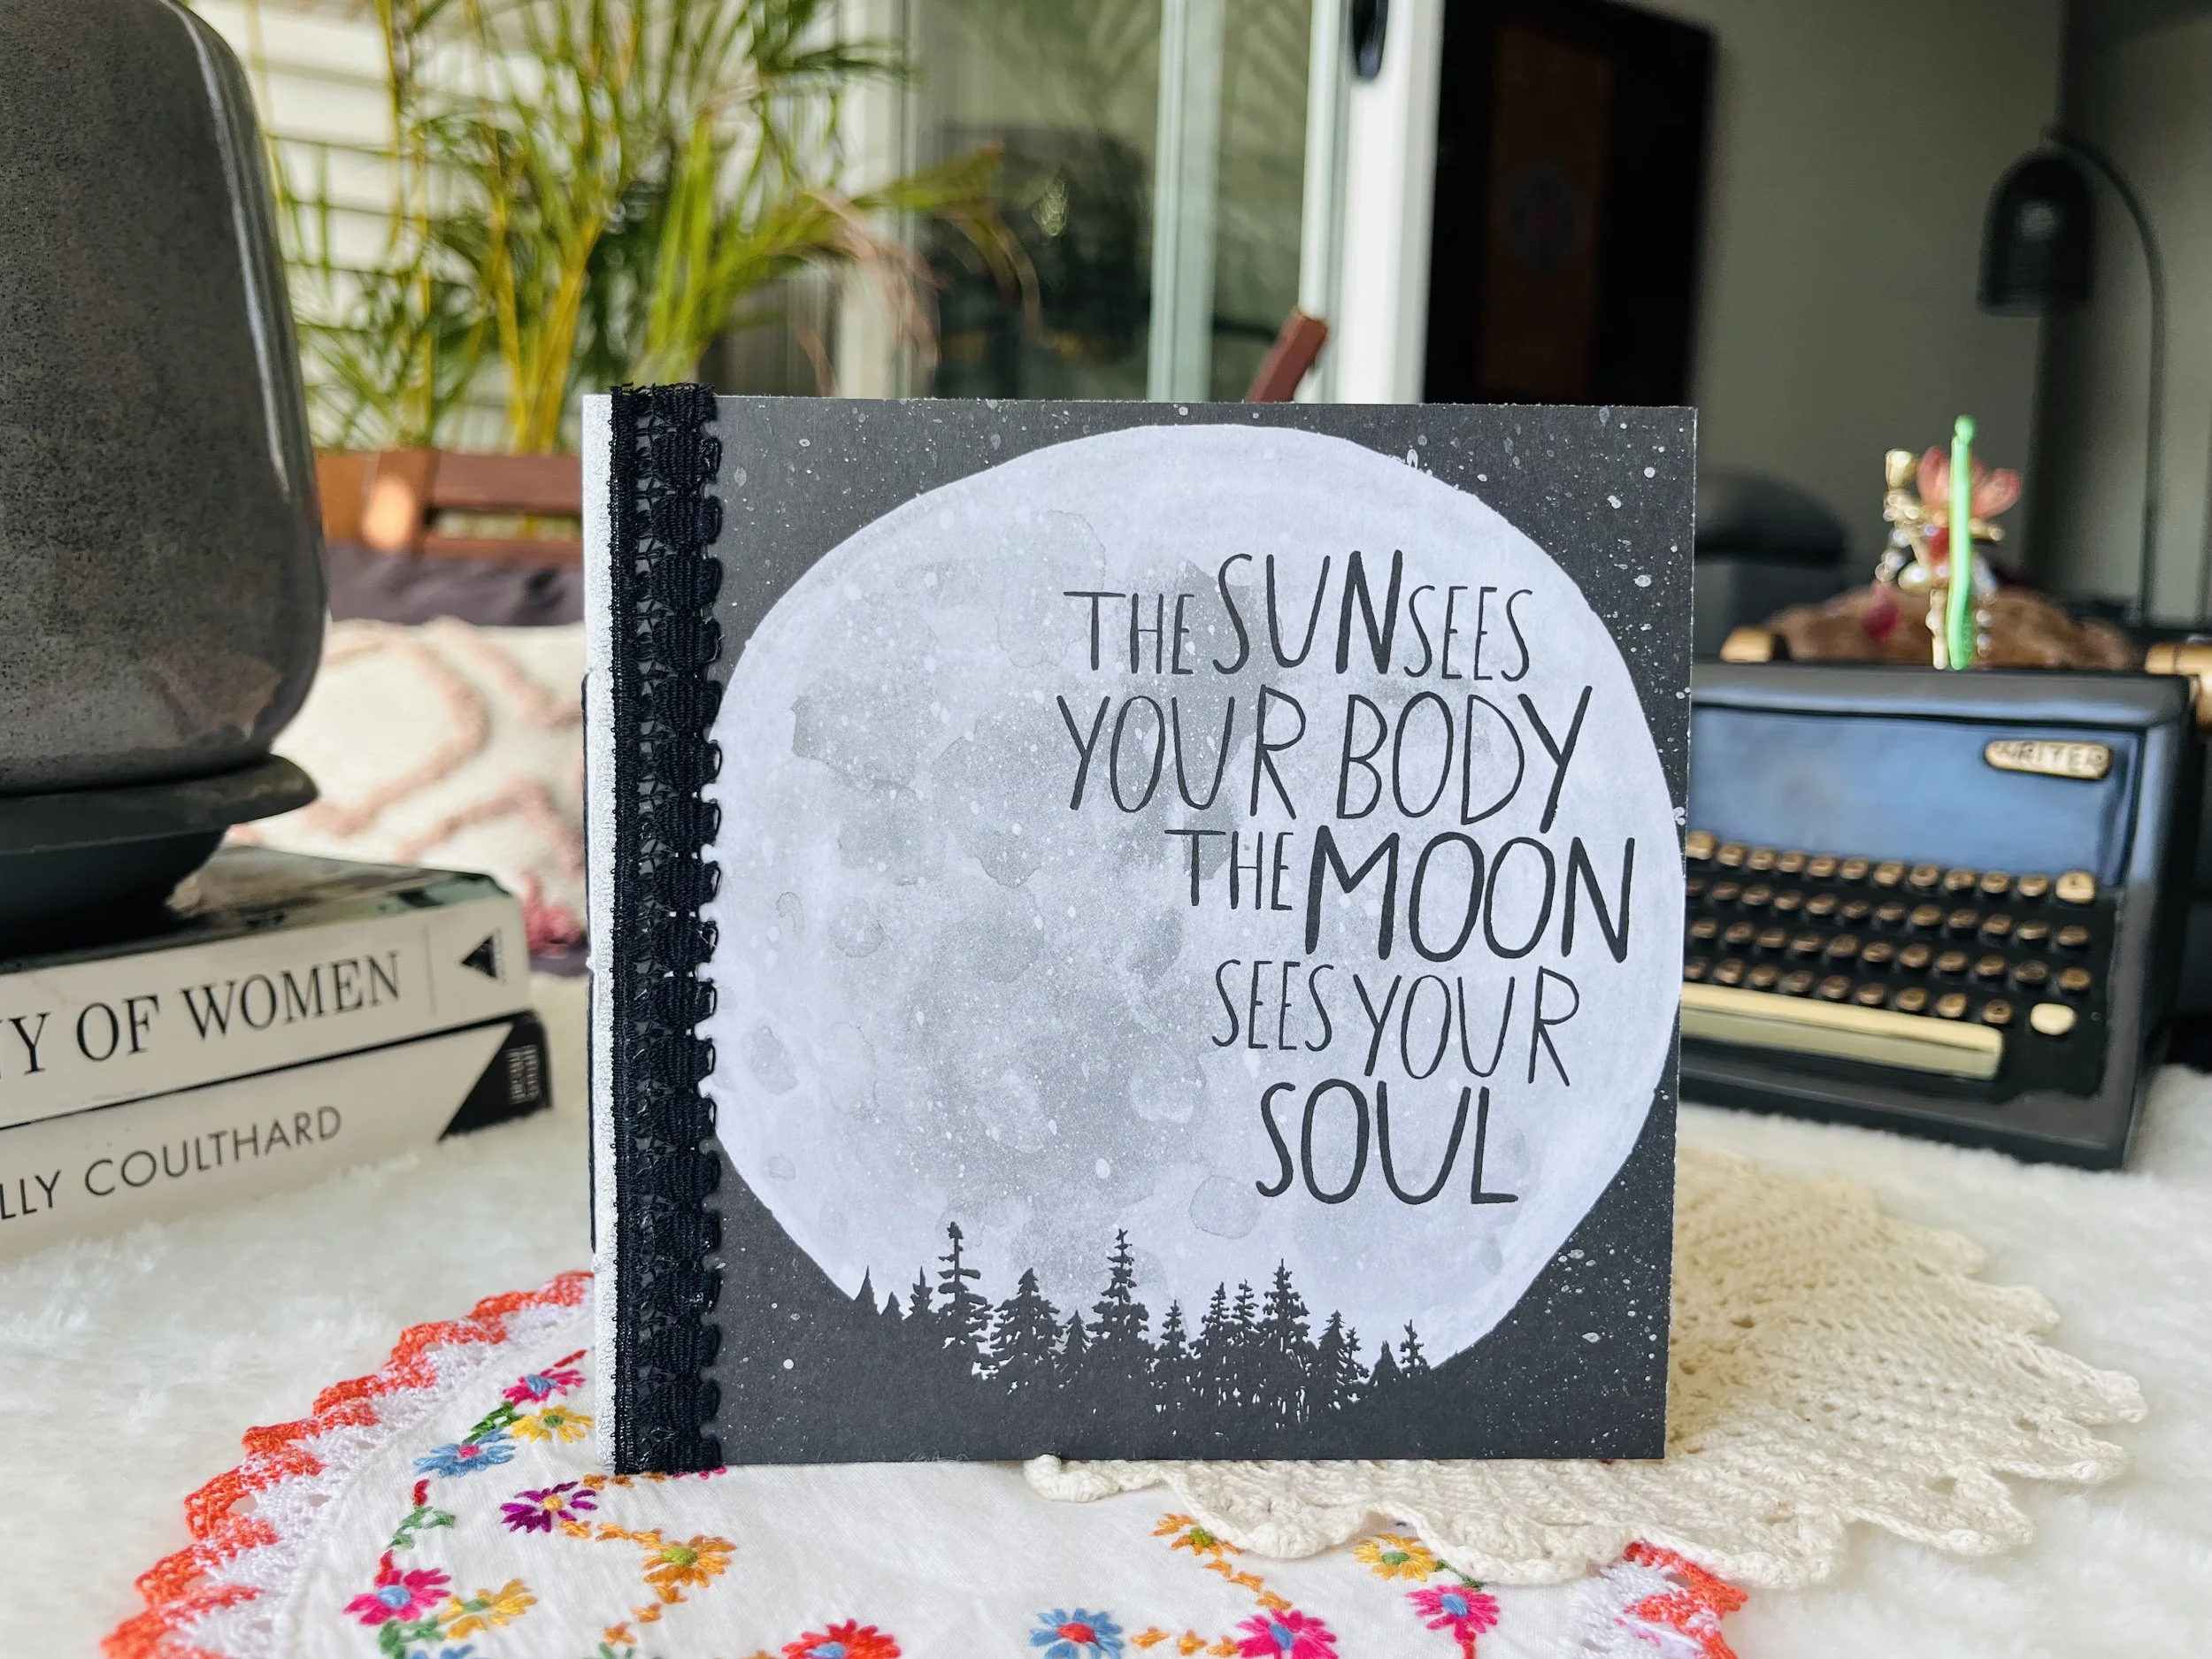 THE SUN SEES
YOUR BODY
THE MOON
SEES YOUR
SOUL
WRITER
NY OF WOMEN
LLY COULTHARD